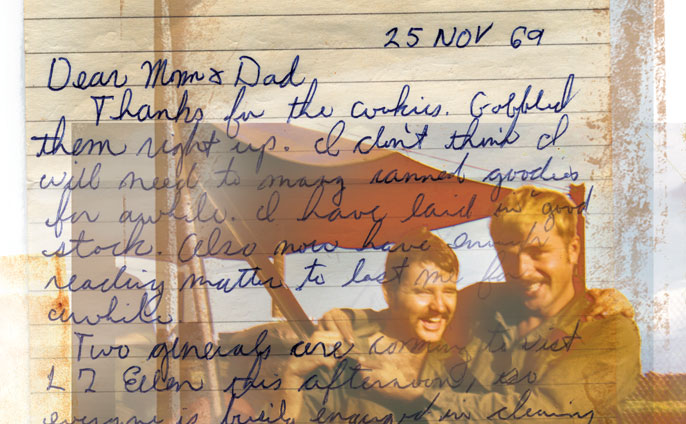 25 NOV 69
Dear Mom & Dad
Thanks for the cookies. Gobbled
them right up. I don't think I
will need to many canned goodies
for awhile. I have laid in good
stock. Also now have enough
reading matter to last me for
awhile.
Two generals are coming to visit
LZ Ellen this afternoon, so
everyone is busily engaged in cleaning